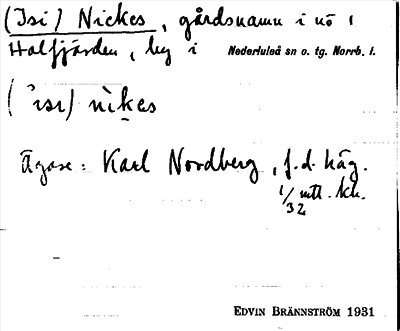 (Isi) Nickes, gårdsnamn i nö 1
Halfjärden, by i Nederluleå sn o. tg. Norrb. l.
(ˈısı) nìkes
Ägare: Karl Nordberg, f.d. häg.
1/32 mtl.
EDVIN BRÄNNSTRÖM 1931